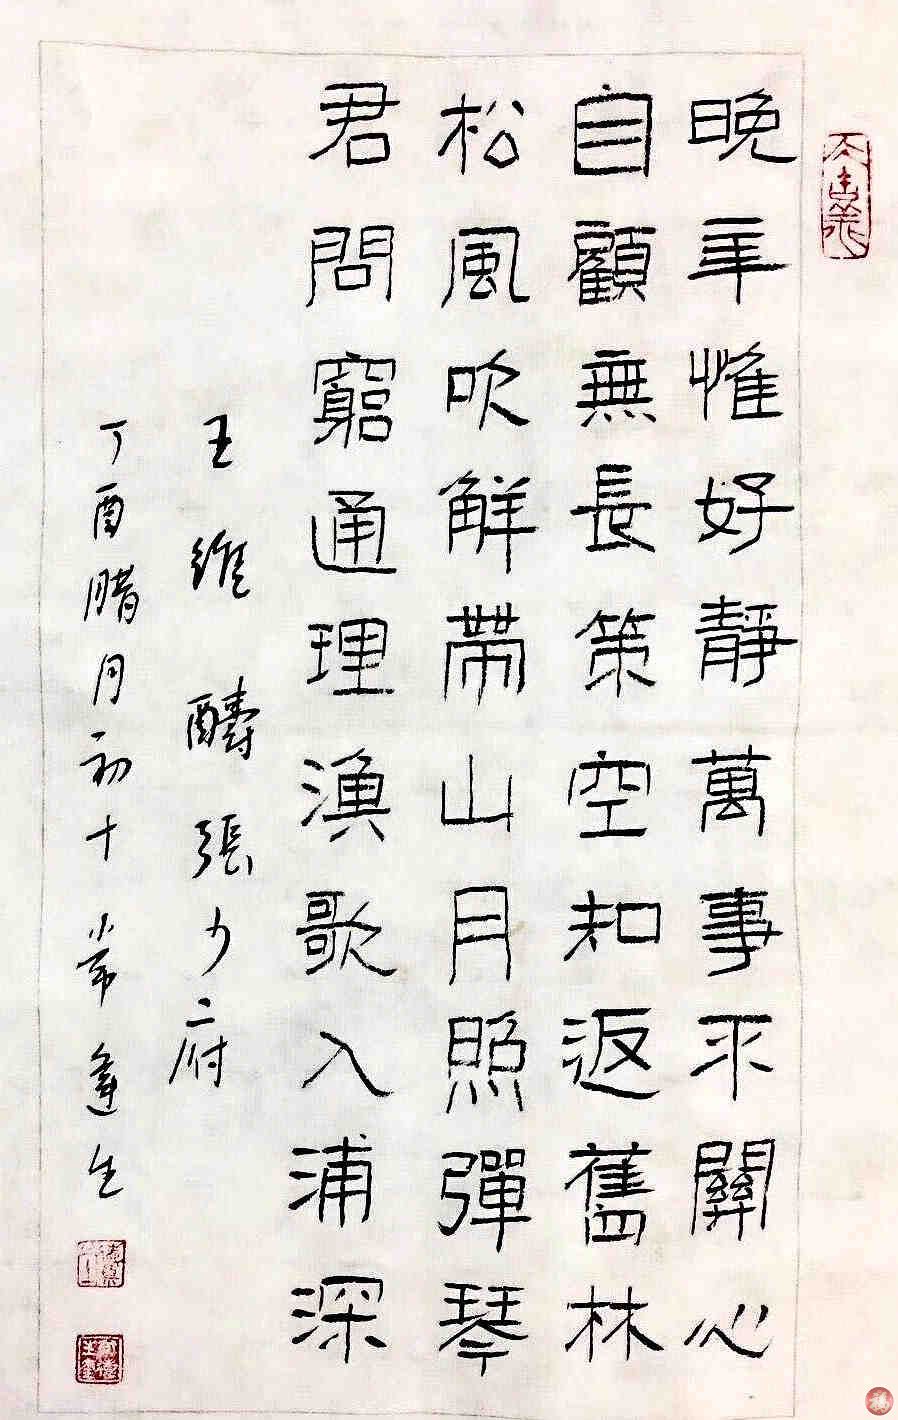 晚年惟好靜萬事不關心
自顧無長策空知返舊林
松風吹解帶山月照彈琴
君問窮通理漁歌入浦深
王維 酬張少府
丁酉腊月初十